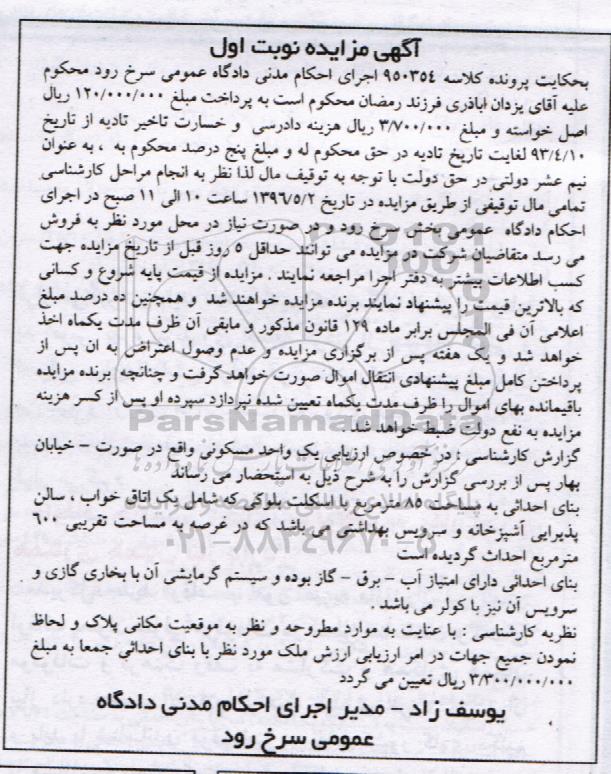 آگهی مزایده نوبت اول
بحکایت پرونده کلاسه ۹۵۰۳۵۴ اجرای احکام مدنی دادگاه عمومی سرخ رود محکوم
علیه آقای یزدان اباذری فرزند رمضان محکوم است به پرداخت مبلغ ۱۲۰/۰۰۰/۰۰۰ ریال
اصل خواسته و مبلغ ۳/۷۰۰/۰۰۰ ریال هزینه دادرسی و خسارت تاخیر تادیه از تاریخ
۹۳/۴/۱۰ لغایت تاریخ تادیه در حق محکوم له و مبلغ پنج درصد محکوم به ، به عنوان
نیم عشر دولتی در حق دولت با توجه به توقیف مال لذا نظر به انجام مراحل کارشناسی
تمامی مال توقیفی از طریق مزایده در تاریخ ۱۳۹۶/۵/۲ ساعت ۱۰ الی ۱۱ صبح در اجرای
احکام دادگاه عمومی بخش سرخ رود و در صورت نیاز در محل مورد نظر به فروش
می رسد متقاضیان شرکت در مزایده می توانند حداقل ۵ روز قبل از تاریخ مزایده جهت
کسب اطلاعات بیشتر به دفتر اجرا مراجعه نمایند . مزایده از قیمت پایه شروع و کسانی
که بالاترین قیمت را پیشنهاد نمایند برنده مزایده خواهند شد و همچنین ده درصد مبلغ
اعلامی آن فی المجلس برابر ماده ۱۲۹ قانون مذکور و مابقی آن ظرف مدت یکماه اخذ
خواهد شد و یک هفته پس از برگزاری مزایده و عدم وصول اعتراض به ان پس از
پرداختن کامل مبلغ پیشنهادی انتقال اموال صورت خواهد گرفت و چنانچه برنده مزایده
باقیمانده بهای اموال را ظرف مدت یکماه تعیین شده نپردازد سپرده او پس از کسر هزینه
مزایده به نفع دولت ضبط خواهد شد.
ParsNamadData
گزارش کارشناسی : در خصوص ارزیابی یک واحد مسکونی واقع در صورت – خیابان
بهار پس از بررسی گزارش را به شرح ذیل به استحضار می رساند
بنای احداثی به مساحت ۸۵ مترمربع با اسکلت بلوکی که شامل یک اتاق خواب ، سالن
پذیرایی آشپزخانه و سرویس بهداشتی می باشد که در عرصه به مساحت تقریبی ۶۰۰
۰۲۱-۸۸۳۴۹۶۷۰-۵
مترمربع احداث گردیده است
بنای احداثی دارای امتیاز آب – برق – گاز بوده و سیستم گرمایشی آن با بخاری گازی و
سرویس آن نیز با کولر می باشد .
نظریه کارشناسی : با عنایت به موارد مطروحه و نظر به موقعیت مکانی پلاک و لحاظ
نمودن جمیع جهات در امر ارزیابی ارزش ملک مورد نظر با بنای احداثی جمعا به مبلغ
۳/۳۰۰/۰۰۰/۰۰۰ ریال تعیین می گردد
یوسف زاد – مدیر اجرای احکام مدنی دادگاه
عمومی سرخ رود